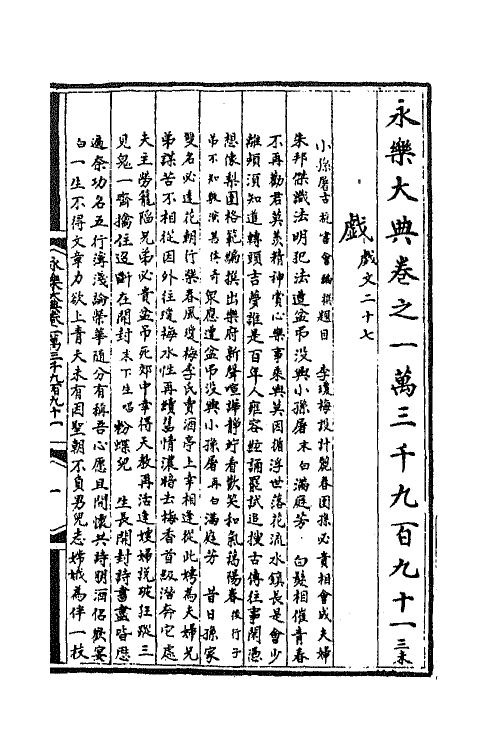 永樂大典卷之一萬三千九百九十一 三末
戲 戲文二十七
小孫屠 古杭書會編撰 題目 李瓊梅設計麗春園 孫必貴相會成夫婦
朱邦傑識法明犯法 遭盆弔沒興小孫屠 末白滿庭芳 白髮相催青春
不再勸君莫羨精神賞心樂事乘興莫因循浮世落花流水鎮長是會少
離頻須知道轉頭吉夢誰是百年人雍容絃誦罷試追搜古傳往事閑憑
想像梨園格範編撰出樂府新聲喧嘩靜竚看歡笑和氣藹陽春 後行子
弟不知敷演甚傳奇 眾應 遭盆弔沒興小孫屠 再白滿庭芳 昔日孫家
雙名必達花朝行樂春風瓊梅李氏賣酒亭上幸相逢從此娉為夫婦兄
弟謀苦不相從因外往瓊梅水性再續舊情濃 將去梅香首級潛奔它處
夫主勞籠陷兄弟必貴盆弔死郊中幸得天教再活逢嫂婦說破狂蹤三
見鬼一齊擒住迢斷在開封 末下 生唱 粉蝶兒 生長開封詩書盡皆歷
遍奈功名五行薄淺論榮華隨分有稱吾心願且開懷共詩朋酒侶歡宴
白一生不得文章力欲上青天未有因聖朝不負男兒志嫦娥為伴一枝
永樂大典卷一萬三千九百九十一
一